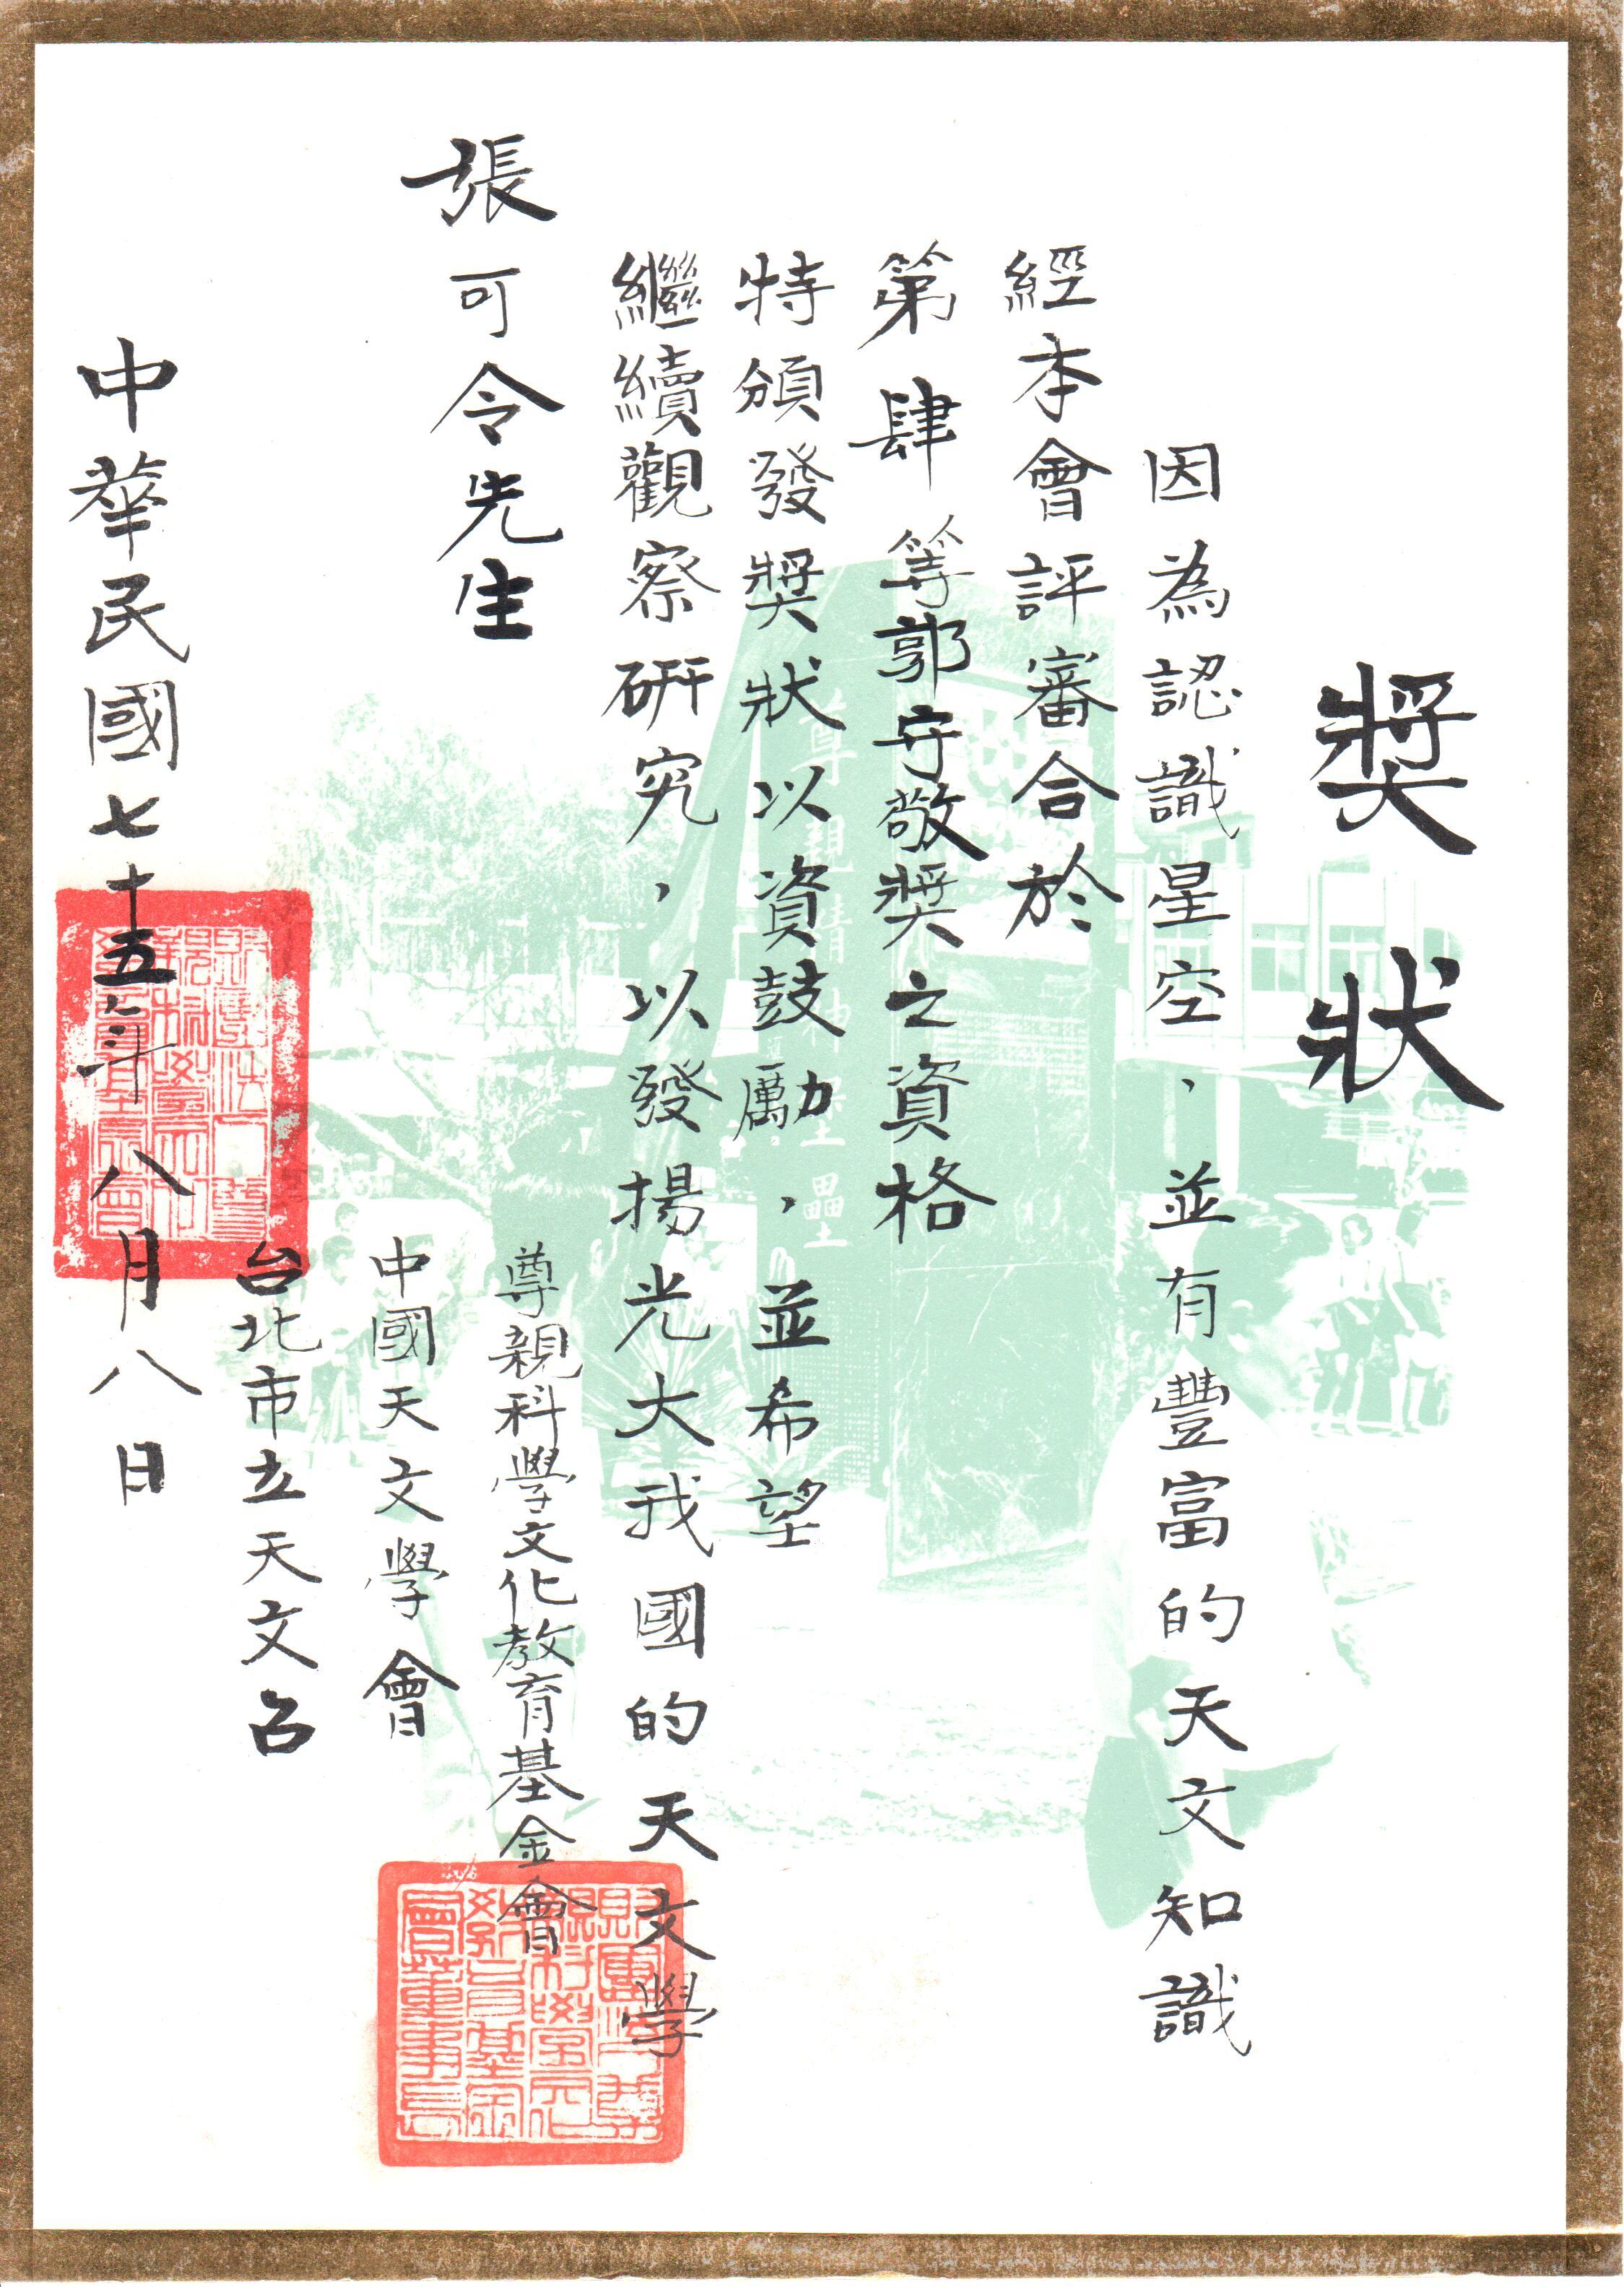 獎狀
因為認識星空，並有豐富的天文知識
經本會評審合於
第肆等郭守敬獎之資格
特頒發獎狀以資鼓勵，並希望
繼續觀察研究，以發揚光大我國的天文學
張可令先生
尊親科學文化教育基金會
中國天文學會
台北市立天文台
中華民國七十五年八月八日